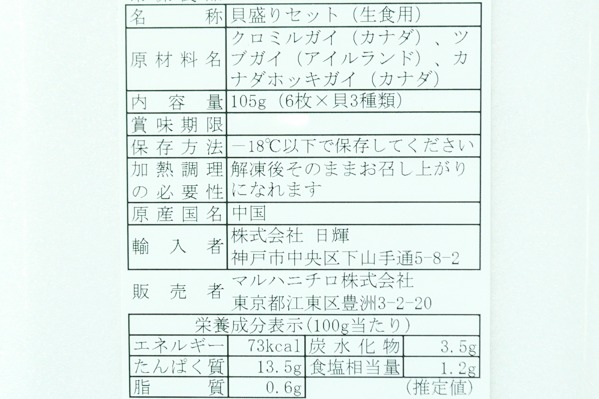 名称 貝盛りセット（生食用）
原材料名 クロミルガイ（カナダ）、ツ
ブガイ（アイルランド）、カ
ナダホッキガイ（カナダ）
内容量 105g（6枚×貝3種類）
賞味期限
保存方法 －18℃以下で保存してください
加熱調理 解凍後そのままお召し上がり
の必要性 になれます
原産国名 中国
輸入者 株式会社 日輝
神戸市中央区下山手通5-8-2
販売者 マルハニチロ株式会社
東京都江東区豊洲3-2-20
栄養成分表示(100g当たり)
エネルギー 73kcal 炭水化物 3.5g
たんぱく質 13.5g 食塩相当量 1.2g
脂質 0.6g (推定値)